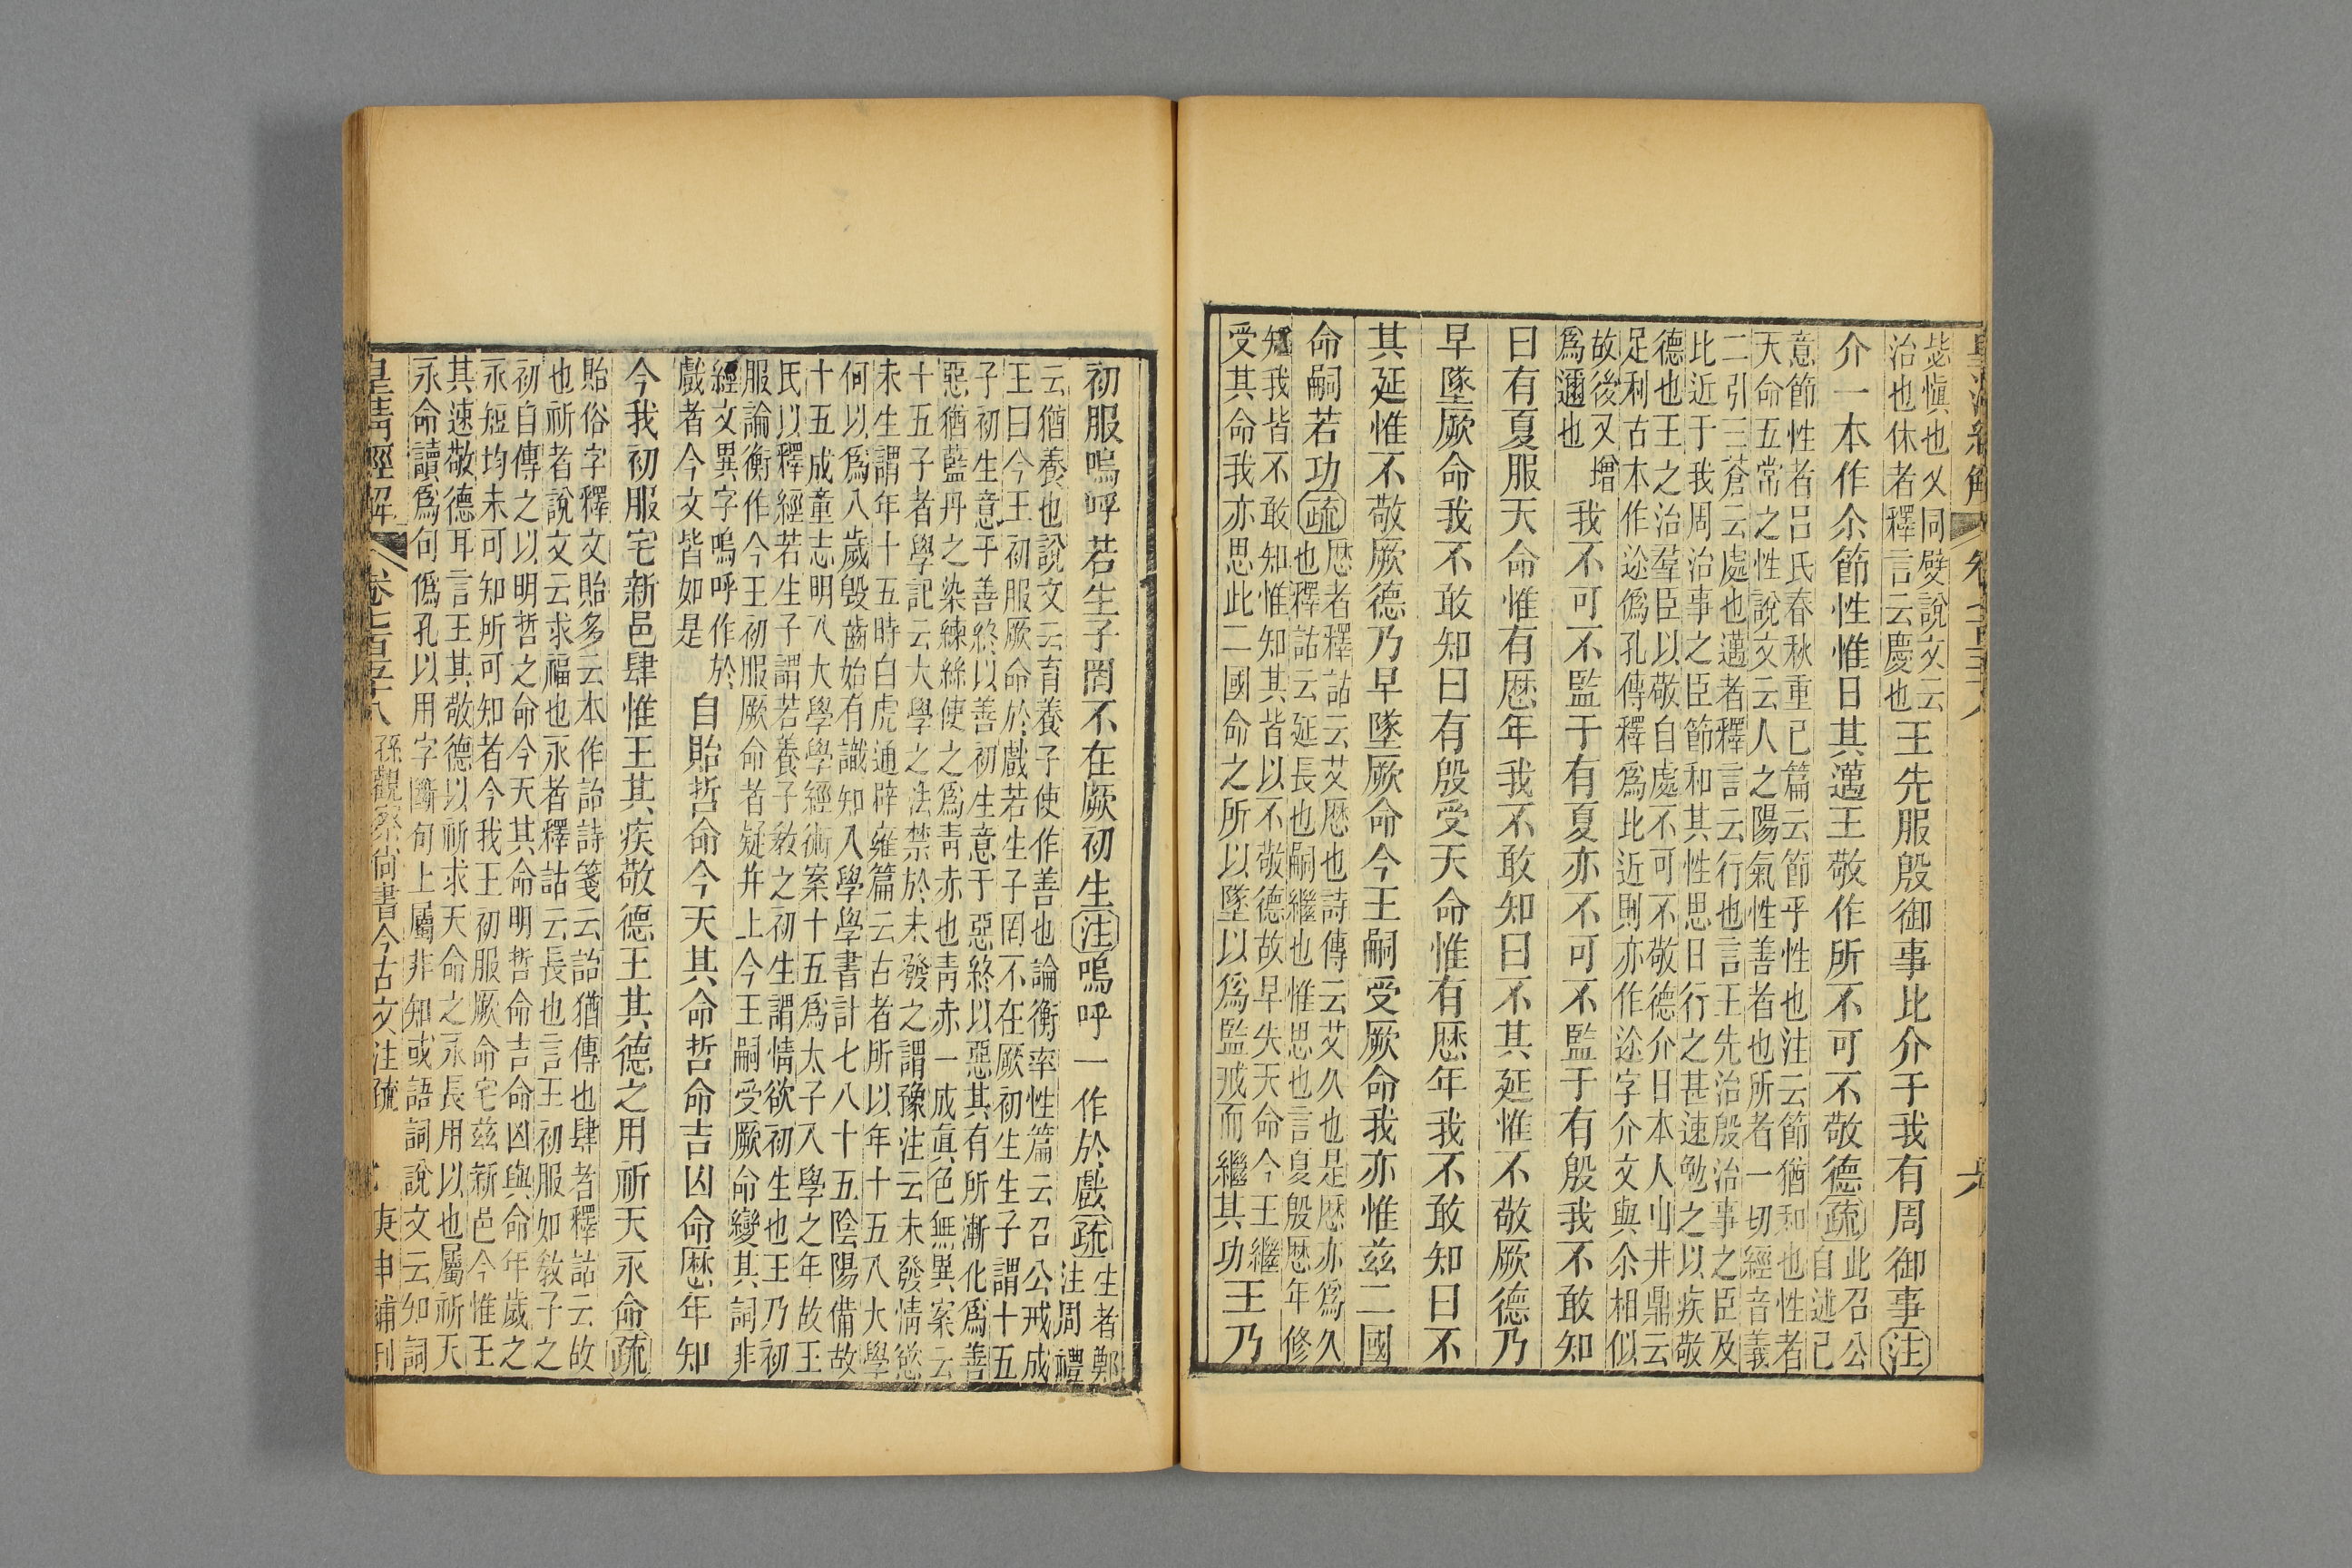 毖愼也乂同嬖說文云
治也休者釋言云慶也
王先服殷御事比介于我有周御事注
介一本作尒節性惟日其邁王敬作所不可不敬德疏
此召公
自述己
意節性者呂氏春秋重己篇云節乎性也注云節猶和也性者
天命五常之性說文云人之陽氣性善者也所者一切經音義
二引三蒼云處也邁者釋言云行也言王先治殷治事之臣及
比近于我周治事之臣節和其性思日行之甚速勉之以疾敬
德也王之治羣臣以敬自處不可不敬德介日本人山井鼎云
足利古本作迩僞孔傳釋爲比近則亦作迩字介文與尒相似
故後又增
爲邇也
我不可不監于有夏亦不可不監于有殷我不敢知
曰有夏服天命惟有厯年我不敢知曰不其延惟不敬厥德乃
早墜厥命我不敢知曰有殷受天命惟有厯年我不敢知曰不
其延惟不敬厥德乃早墜厥命今王嗣受厥命我亦惟兹二國
命嗣若功疏
厯者釋詁云艾厯也詩傳云艾久也是厯亦爲久
也釋詁云延長也嗣繼也惟思也言夏殷厯年修
知我皆不敢知惟知其皆以不敬德故早失天命今王繼
受其命我亦思此二國命之所以墜以爲監戒而繼其功
王乃
初服嗚呼若生子罔不在厥初生注嗚呼一作於戲疏
生者鄭
注周禮
云猶養也說文云育養子使作善也論衡率性篇云召公戒成
王曰今王初服厥命於戲若生子罔不在厥初生生子謂十五
子初生意乎善終以善初生意于惡終以惡其有所漸化爲善
惡猶藍丹之染練絲使之爲青赤也青赤一成眞色無異案云
十五子者學記云大學之法禁於未發之謂豫注云未發情慾
未生謂年十五時白虎通辟雍篇云古者所以年十五入大學
何以爲八歲毀齒始有識知入學學書計七八十五陰陽備故
十五成童志明入大學學經術案十五爲太子入學之年故王
氏以釋經若生子謂若養子敎之初生謂情欲初生也王乃初
服論衡作今王初服厥命者疑幷上今王嗣受厥命變其詞非
經文異字嗚呼作於
戲者今文皆如是
自貽哲命今天其命哲命吉凶命厯年知
今我初服宅新邑肆惟王其疾敬德王其德之用祈天永命疏
貽俗字釋文貽多云本作詒詩箋云詒猶傳也肆者釋詁云故
也祈者說文云求福也永者釋詁云長也言王初服如敎子之
初自傳之以明哲之命今天其命明哲命吉命凶與命年歲之
永短均未可知所可知者今我王初服厥命宅兹新邑今惟王
其速敬德耳言王其敬德以祈求天命之永長用以也屬祈天
永命讀爲句僞孔以用字斷句上屬非知或語詞說文云知詞
皇清經解
卷七百五十八
孫觀察尙書今古文注疏
庚申補刊